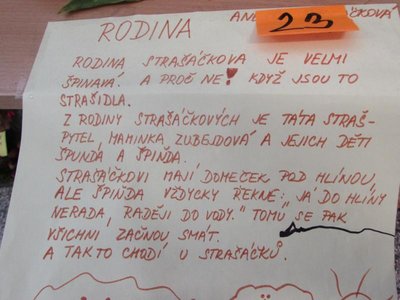 RODINA
23
RODINA STRAŠÁČKOVA JE VELMI
ŠPINAVÁ. A PROČ NE! KDYŽ JSOU TO
STRAŠIDLA.
Z RODINY STRAŠÁČKOVÝCH JE TÁTA STRAŠ-
PYTEL, MAMINKA ZUBEJDOVÁ A JEJICH DĚTI
ŠPUNĎA A ŠPIŇĎA.
STRAŠÁČKOVI MAJÍ DOMEČEK POD HLÍNOU,
ALE ŠPIŇĎA VŽDYCKY ŘEKNE: „JÁ DO HLÍNY
NERADA, RADĚJI DO VODY." TOMU SE PAK
VŠICHNI ZAČNOU SMÁT.
A TAKTO CHODÍ U STRAŠÁČKŮ.